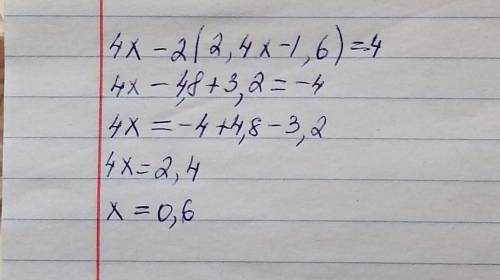 4x - 2(2,4x-1,6)=-4
4x - 4,8+3,2=-4
4x =-4+4,8-3,2
4x=2,4
x=0,6